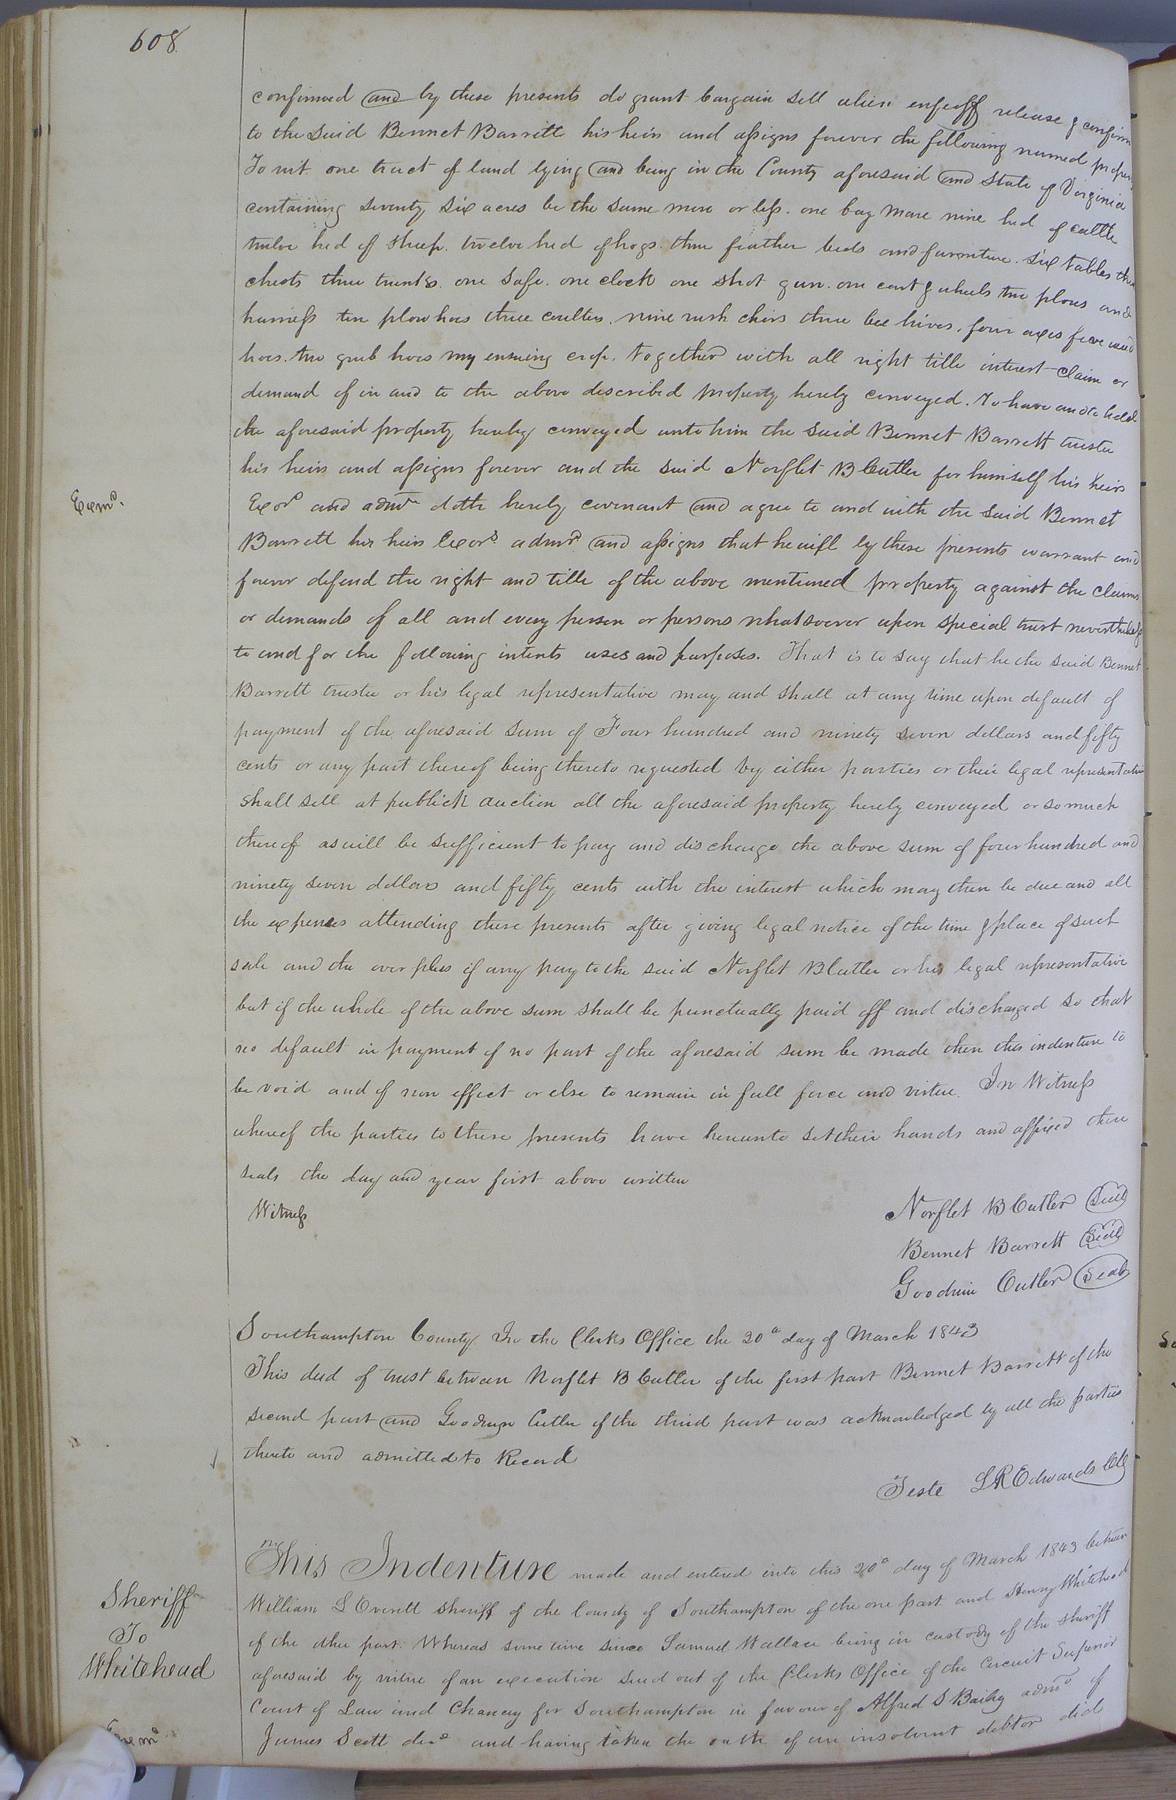 608
confirmed and by these presents do grant bargain sell alien enfeoff release & confirm
to the said Bennet Barrett his heirs and assigns forever the following named
To wit one tract of land lying and being in the County aforesaid and State of Virginia
containing seventy six acres be the same more or less. one bay mare nine hed of cattle
twelve hed of sheep. twelve hed of hogs. three feather beds and furniture. six tables three
chests three trunks. one safe. one clock one shot gun. one cart & wheels two plows and
harness ten plow hoes three coulters. nine rush chirs three bee hives. four axes five weed
hoes. two grub hoes my ensuing crop. together with all right title interest claim or
demand of in and to the above described property hereby conveyed. To have and to hold
the aforesaid property hereby conveyed unto him the said Bennet Barrett trustee
his heirs and assigns forever and the said Norflet B Cutler for himself his heirs
Exors and admrs doth hereby covenant and agree to and with the said Bennet
Exmd.
Barrett his heirs Exors admrs and assigns that he will by these presents warrant and
forever defend the right and title of the above mentioned property against the claims
or demands of all and every person or persons whatsoever upon special trust nevertheless
to and for the following intents uses and purposes. That is to say that he the said Bennet
Barrett trustee or his legal representative may and shall at any time upon default of
payment of the aforesaid sum of Four hundred and ninety seven dollars and fifty
cents or any part thereof being thereto requested by either parties or their legal representative
shall sell at publick auction all the aforesaid property hereby conveyed or so much
thereof as will be sufficient to pay and discharge the above sum of four hundred and
ninety seven dollars and fifty cents with the interest which may then be due and all
the expences attending these presents after giving legal notice of the time & place of such
sale and the over plus if any pay to the said Norflet B Cutler or his legal representative
but if the whole of the above sum shall be punctually paid off and discharged so that
no default in payment of no part of the aforesaid sum be made then this indenture to
be void and of non effect or else to remain in full force and virtue. In Witness
whereof the parties to these presents have hereunto set their hands and affixed their
seals the day and year first above written
Witness
Norflet B Cutler Seal
Bennet Barrett Seal
Goodwin Cutler Seal
Southampton County In the Clerks Office the 20th day of March 1843
This deed of trust between Norflet B Cutler of the first part Bennet Barrett of the
second part and Goodwyn Cutler of the third part was acknowledged by all the parties
thereto and admitted to Record
Teste L R Edwards Clk
Sheriff
To
Whitehead
This Indenture made and entered into this 20th day of March 1843 between
William S Everett Sheriff of the County of Southampton of the one part and Henry Whitehead
of the other part. Whereas some time since Samuel Wallace being in custody of the sheriff
aforesaid by virtue of an execution sued out of the Clerks Office of the Circuit Superior
Court of Law and Chancery for Southampton in favour of Alfred S Bailey admr of
James Scott decd and having taken the oath of an insolvent debtor did
Exmd